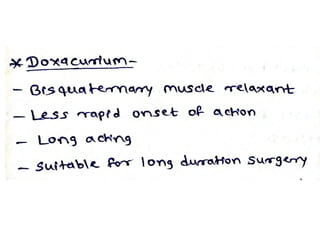 * Doxacurium-
- Bisquaternary muscle relaxant
- Less rapid onset of action
- Long acting
- Suitable for long duration surgery